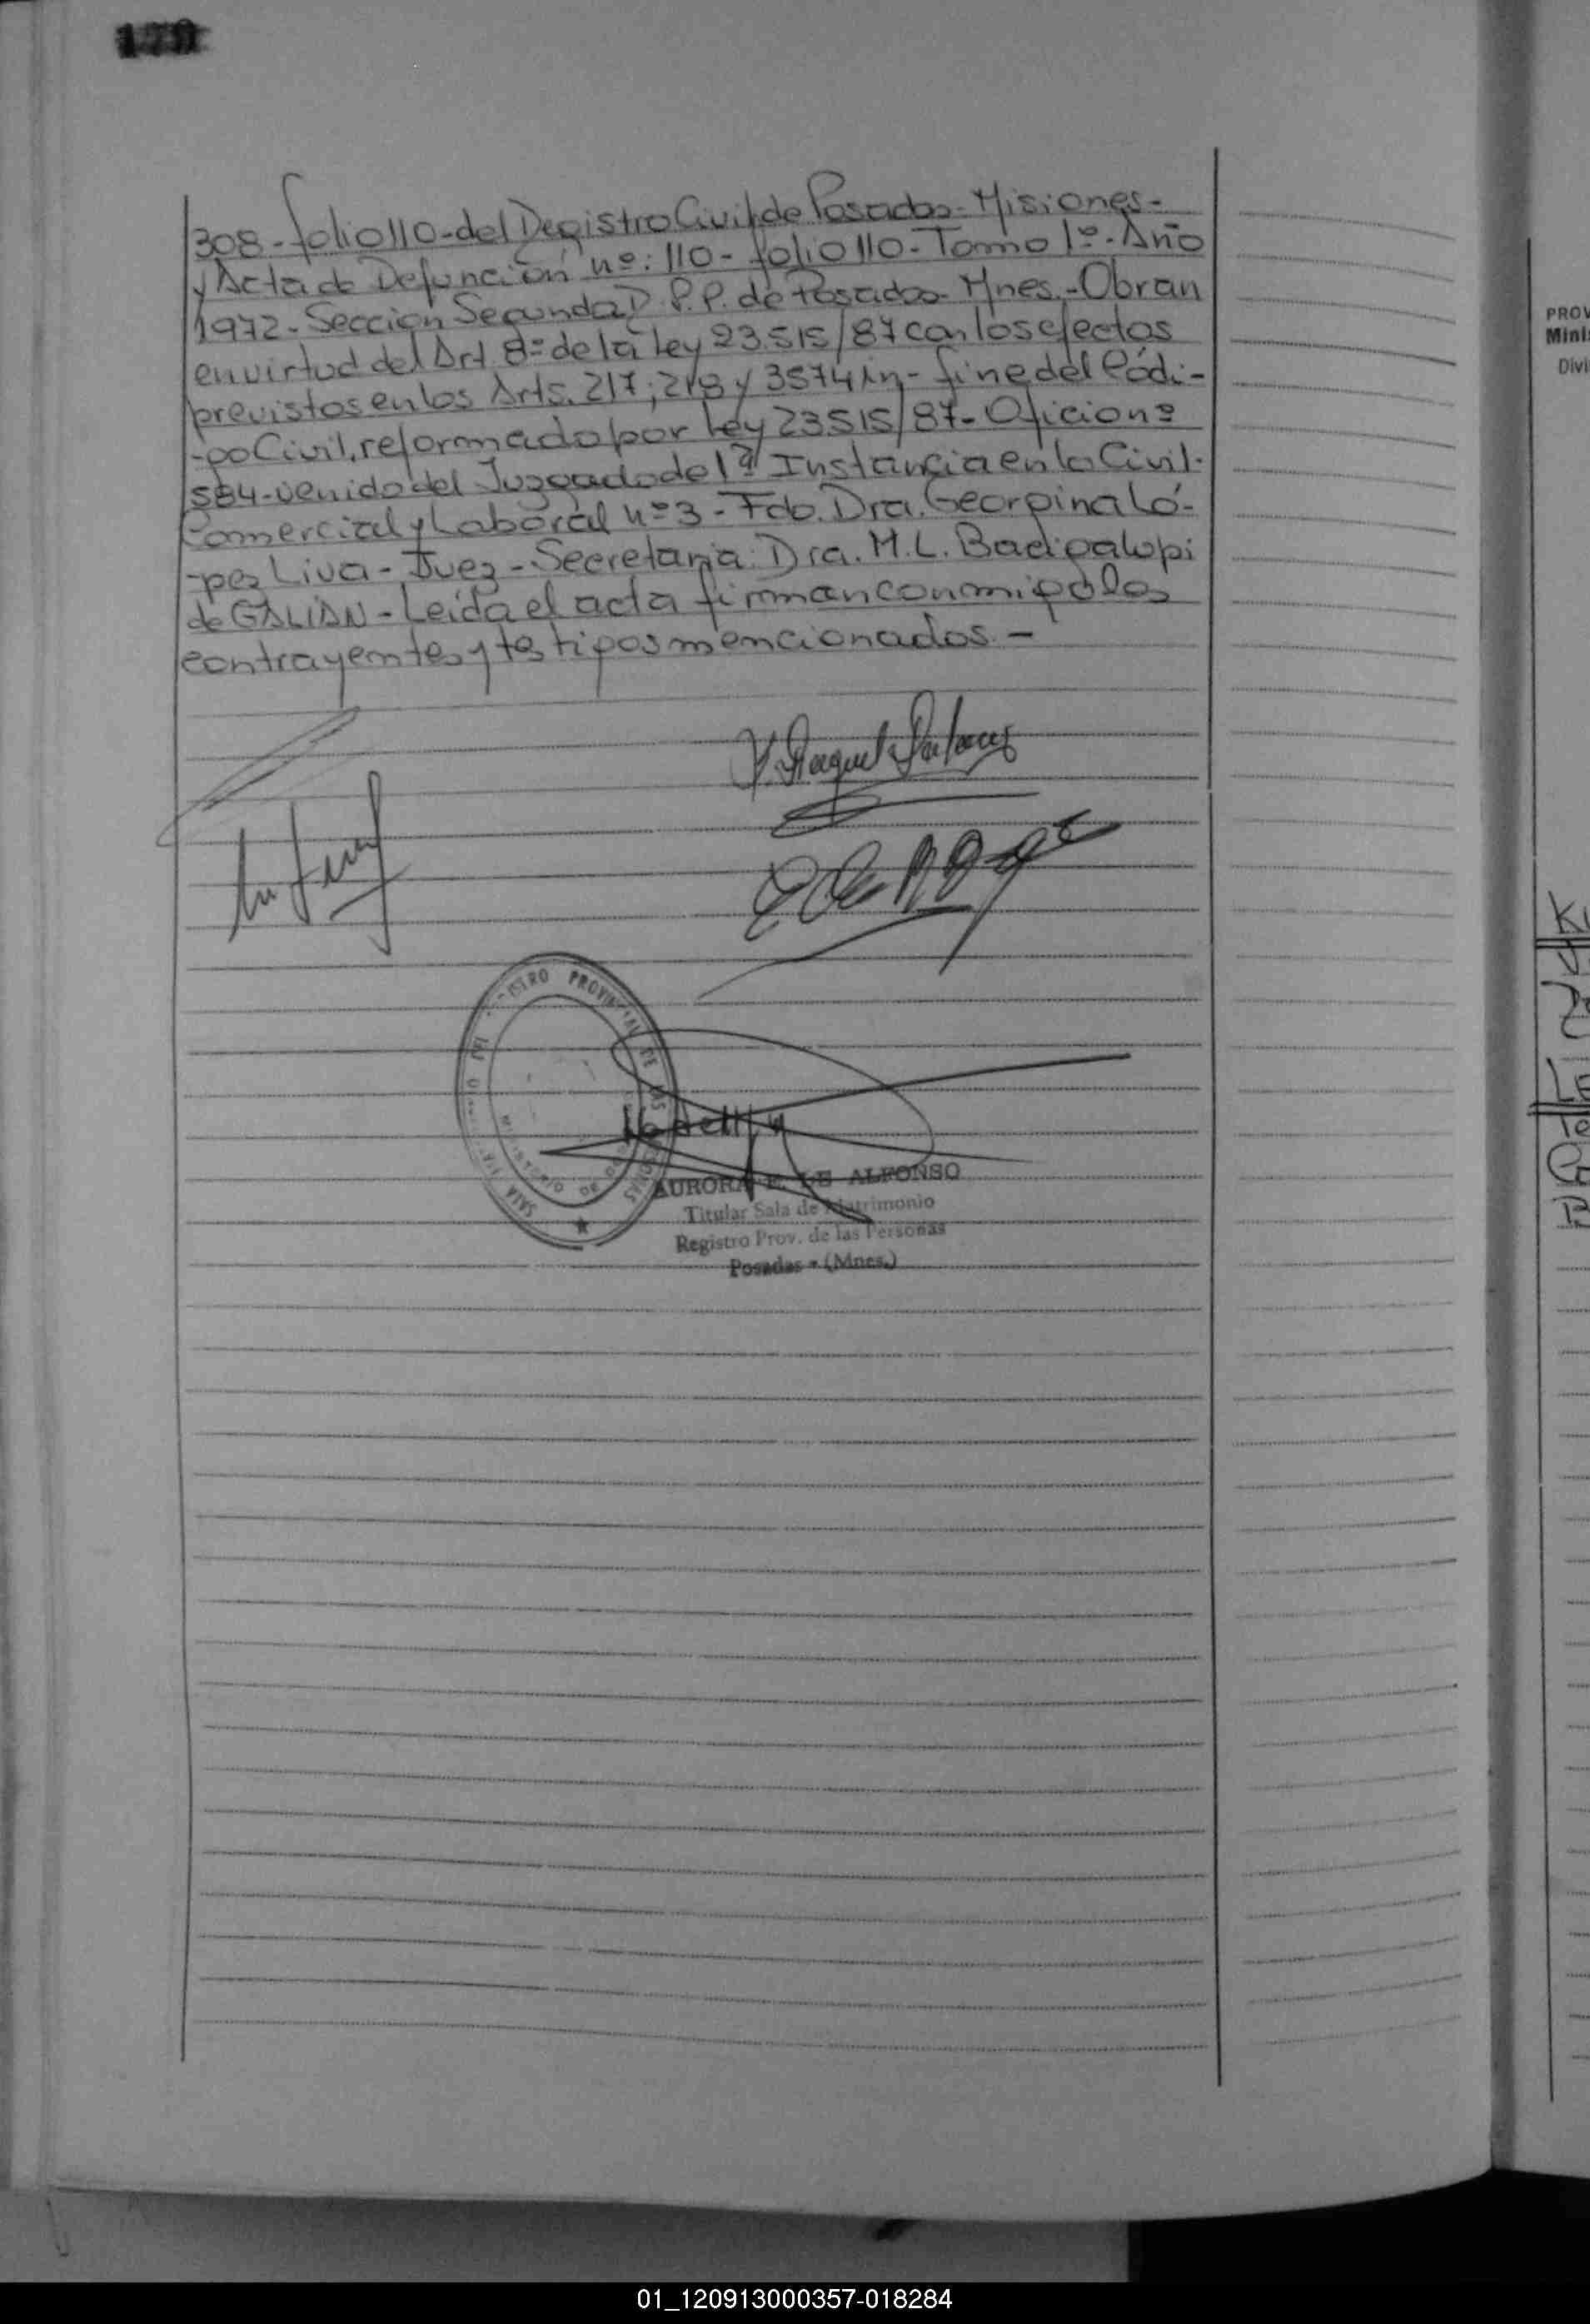 308-folio 110-del Registro Civil, de Posadas-Misiones-
y Acta de Defunción nº: 110- folio 110-Tomo 1º-Año
1972-Sección Segunda R.P.P. de Posadas-Mnes.-Obran
en virtud del Art. 8º de la Ley 23.515/87 con los efectos
previstos en los Arts. 217; 218 y 3574 in-fine del Códi-
-go Civil, reformado por Ley 23515/87-Oficio nº
584-venido del Juzgado de 1ª Instancia en lo Civil-
Comercial y Laboral nº 3-Fdo. Dra. Georgina Ló-
-pez Liva-Juez-Secretaria: Dra. M.L. Badigalupi
de GALIAN-Leída el acta firman conmigo los
contrayentes y testigos mencionados.-
Raquel
REGISTRO PROVINCIAL DE LAS PERSONAS
MINISTERIO DE
SALA
AURORA E. DE ALFONSO
Titular Sala de Matrimonio
Registro Prov. de las Personas
Posadas - (Mnes.)
PROV
Minis
Divi
01_120913000357-018284